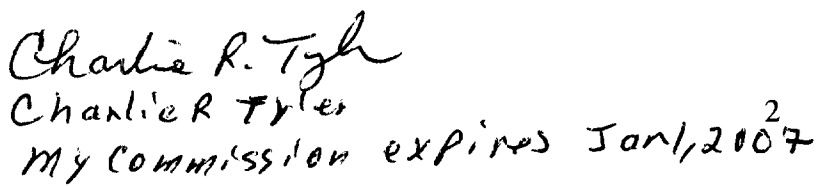 Charlie R. Tyler
Charlie R Tyler
My commission expires Jan 1, 2007
2